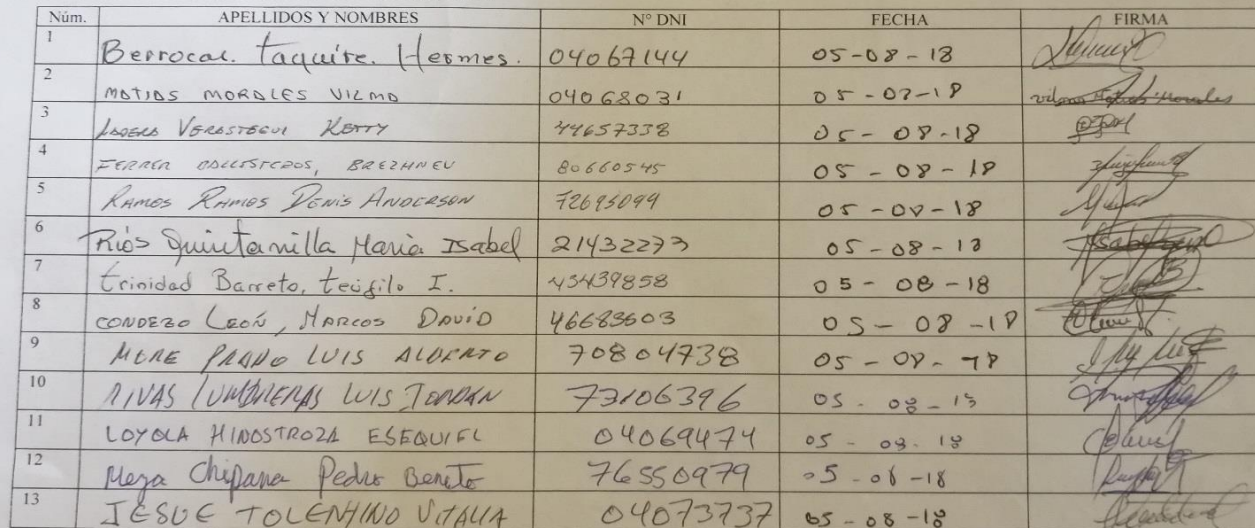 Núm. APELLIDOS Y NOMBRES N° DNI FECHA FIRMA
1 Berrocal. Taquire. Hermes. 04067144 05-08-18
2 MATIAS MORALES VILMA 04068031 05-08-18 Vilma Matias Morales
3 VERASTEGUI KETTY 44657338 05-08-18
4 FERRER BALLESTEROS, BREZHNEV 80660545 05-08-18
5 RAMOS RAMOS DENIS ANDERSON 72695099 05-08-18
6 Rios Quintanilla Maria Isabel 21432273 05-08-18
7 Trinidad Barreto, Teofilo I. 43439858 05-08-18
8 CONDEZO LEÓN, MARCOS DAVID 46683603 05-08-18
9 MERE PRADO LUIS ALBERTO 70804738 05-08-18
10 RIVAS LUMBRERAS LUIS JORDAN 77106396 05-08-18
11 LOYOLA HINOSTROZA ESEQUIEL 04069474 05-08-18
12 Meza Chipana Pedro Benito 76550979 05-08-18
13 JESUE TOLENTINO VITALIA 04073737 05-08-18